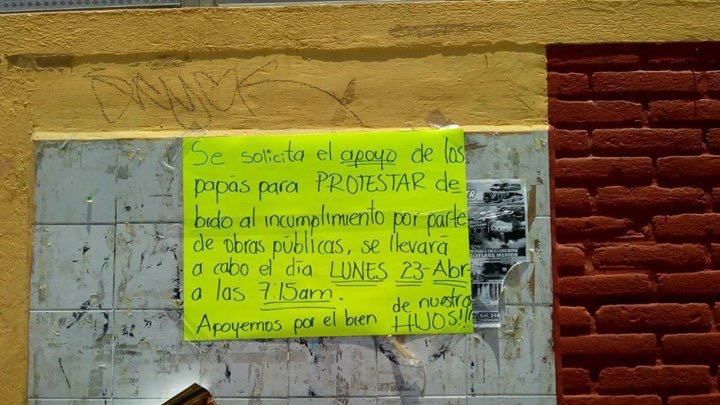 Se solicita el apoyo de los
papás para PROTESTAR de
bido al incumplimiento por parte
de obras públicas, se llevará
a cabo el día LUNES 23-Abr
a las 7:15am.
Apoyemos por el bien de nuestro
HIJOS!!